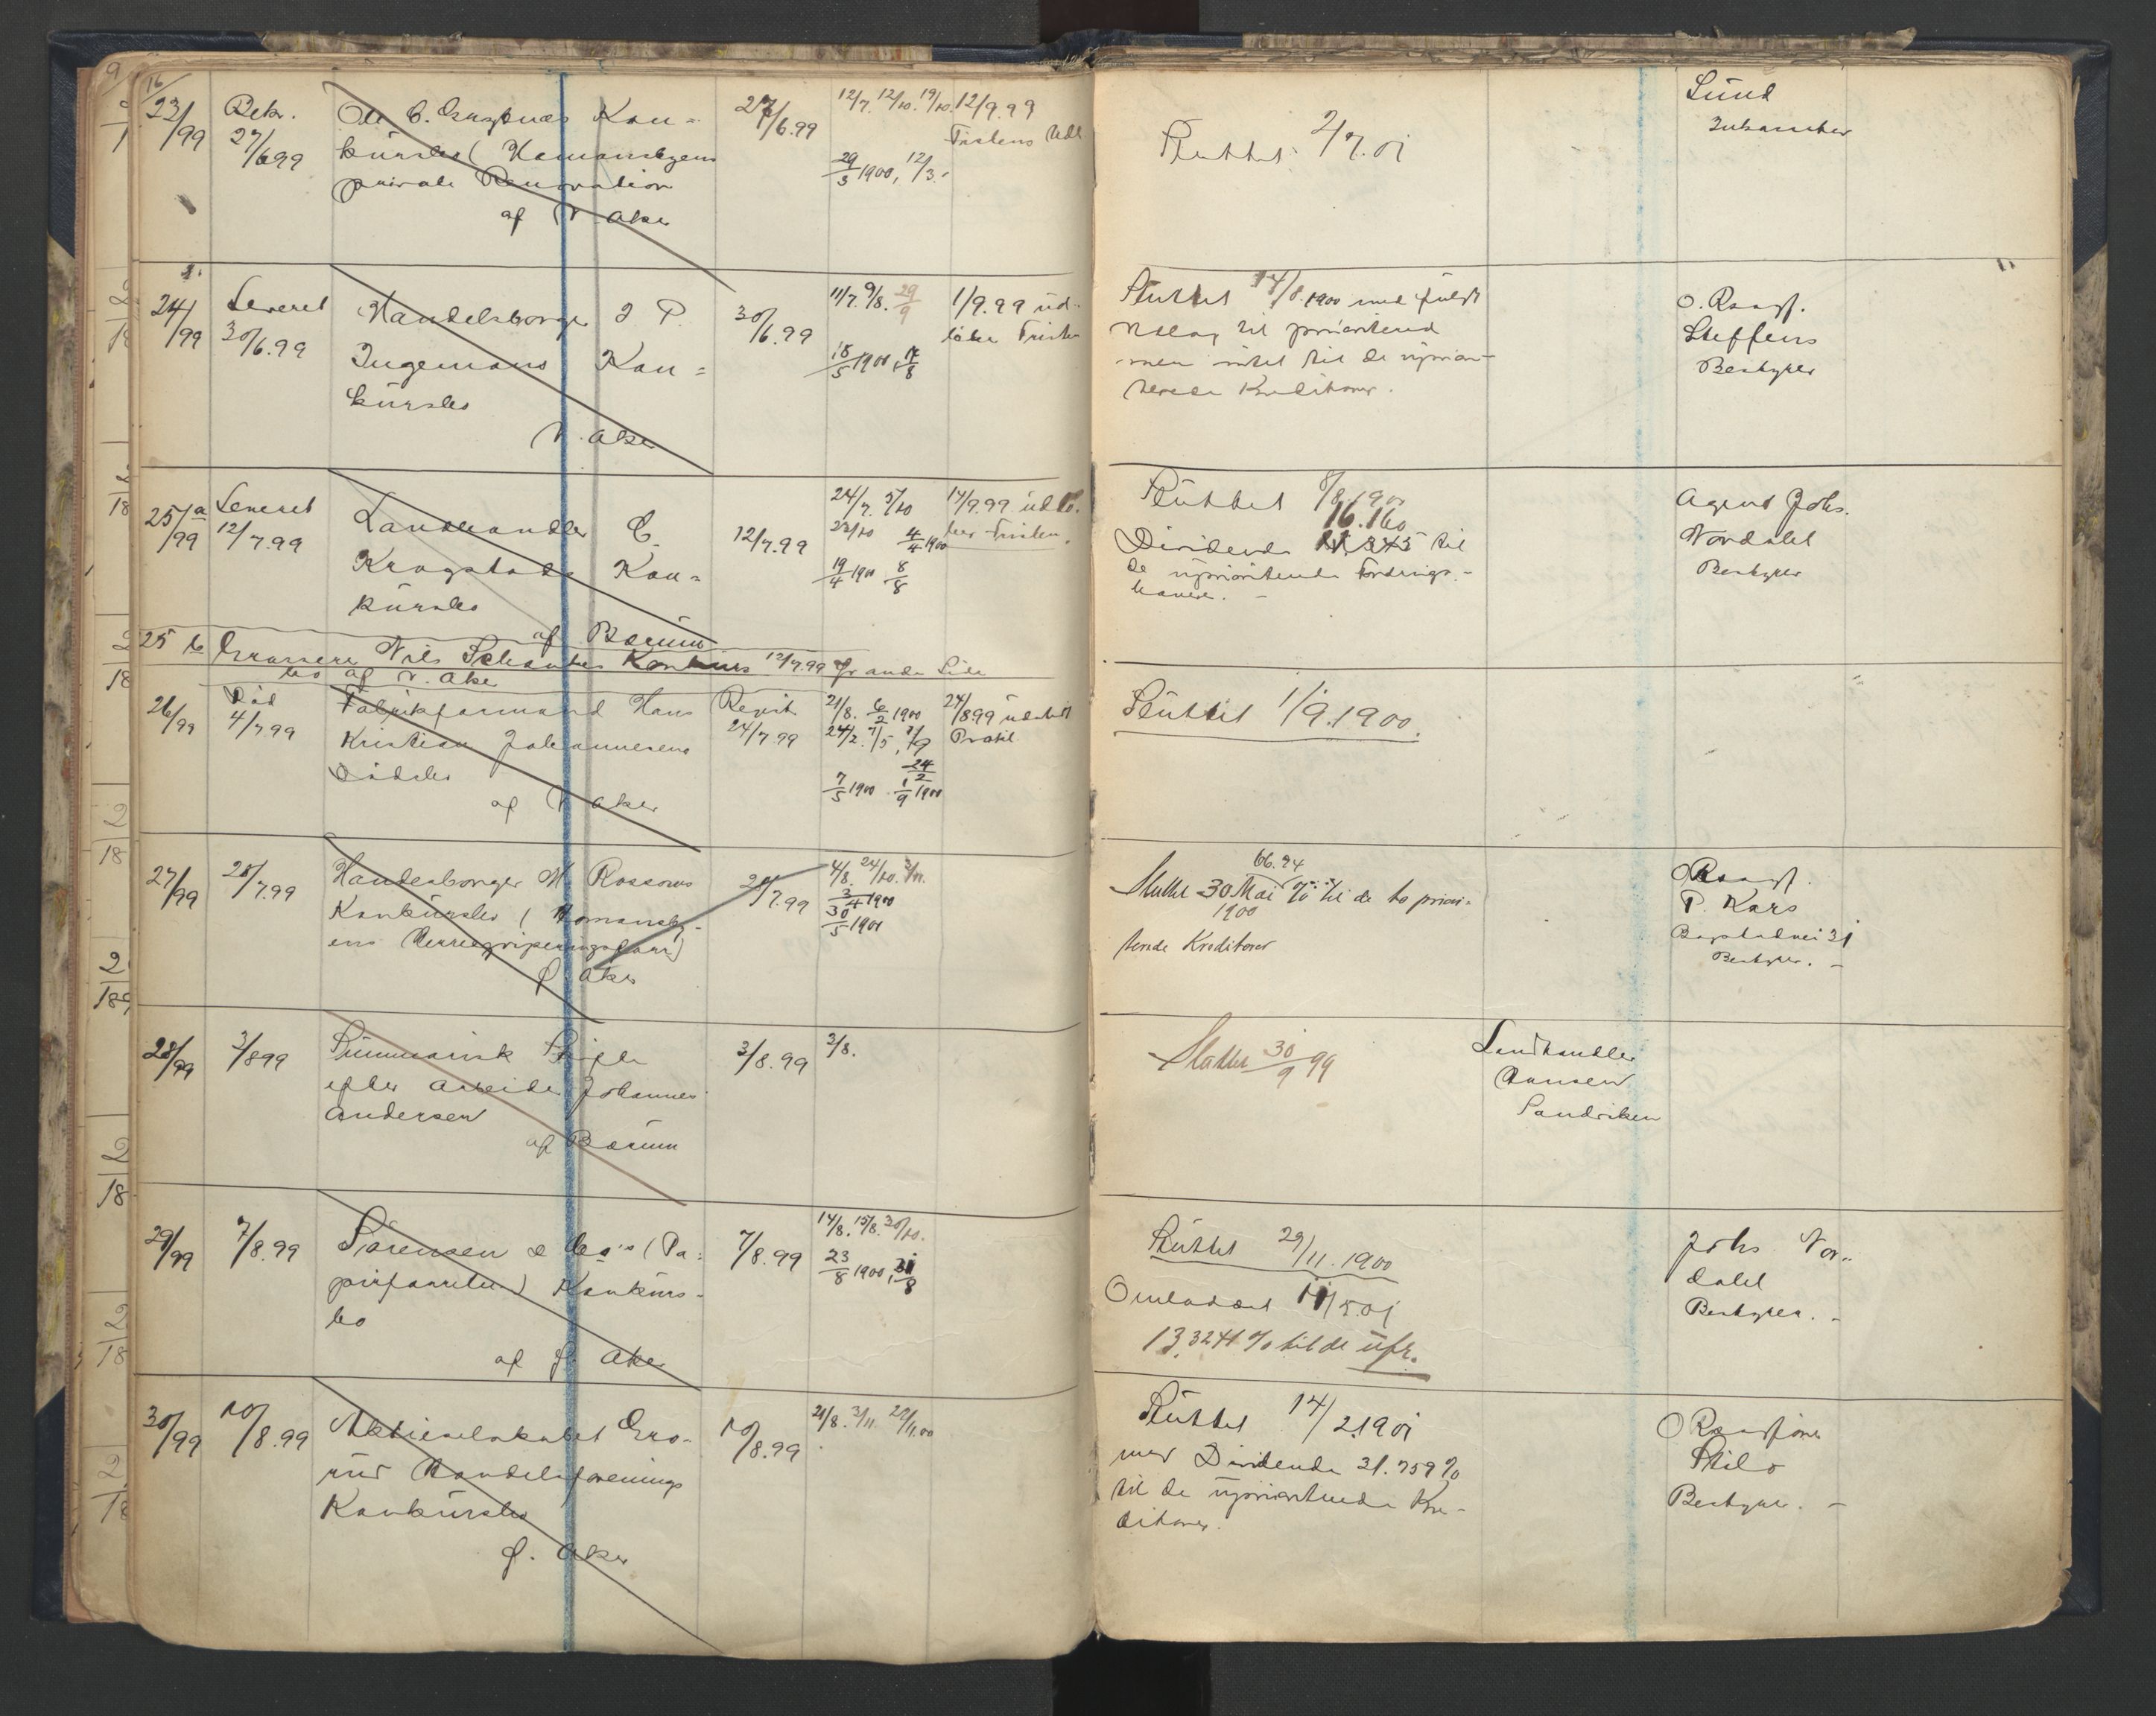 16
23/99
Bek. 27/6 99
Ole C. Kon=
kursbo ( Homansbyens
private Renovation
af V. Aker
27/6.99
12/7. 12/10. 19/10. 12/9.99
Fristens Udl
29/3 1900, 12/3.
Sluttet 2/7.01
Lund
Inkassator
24/99
Leveret 30/6.99
Handelsborger J P.
Ingemans Kon=
kursbo
V. Aker
30/6.99
11/7. 9/8. 29/9
18/5 1900, 17/8
1/9.99 ud-
løber Fristen
Sluttet 14/8.1900 med fuldt
Udlæg til prioriterede
men intet til de uprior-
terede Kreditorer.
O. Rsagf.
Steffens
Bestyrer
25/a 99
Leveret 12/7.99
Landhandler C.
Krogstads Kon=
kursbo
af Bærum
12/7.99
24/7. 5/10
23/10 4/4 1900
19/4 1900 8/8
14/9.99 udlø-
ber Fristen.
Sluttet 8/8 1900
16.160
Dividende til
de uprioriterede Fordrings-
havere.
Agent Johs.
Nordahl
Bestyrer
25 b Grosserer Nils Konkurs 12/7.99 Se anden Side
bo af V. Aker
26/99
Død 4/7.99
Fabrikformand Hans
Kristian Johannesens
Dødsbo
af V. Aker
Regist. 24/7.99
21/8. 6/2 1900
24/2. 7/5, 1/9
24/2
7/5 1900 1/9 1900
24/8 99 udstedt
Prokl.
Sluttet 1/9.1900.
27/99
28/7.99
Handelsborger M. Rossows
Konkursbo ( Homansby-
ens Herreekviperingsforr)
Ø. Aker
28/7.99
4/8. 24/10. 3/11.
3/4 1900
30/5 1900
66.94
Sluttet 30 Mai % til de to priori-
1900
terede Kreditorer
O Rsagf.
P. Kars
Bogstadvei 31
Bestyrer.
28/99
3/8 99
Summarisk Skifte
efter Arbeider Johannes
Andersen
af Bærum
3/8.99
3/8.
Sluttet 30/9 99
Landhandler
Hansen
Sandviken
29/99
7/8.99
Sørensen & Co's (Pa=
pirforretn) Konkurs-
bo
af Ø. Aker
7/8.99
14/8. 15/8. 30/10.
23/8 1900, 31/8
Sluttet 29/11.1900
Omlodset 11/5.01
13,3241 % til de upr.
Johs Nor-
dahl
Bestyrer.
30/99
10/8.99
Aktieselskabet Gro-
rud Handelsforenings
Konkursbo
Ø. Aker
10/8.99
21/8. 3/11. 27/11.00
Sluttet 14/2 1901
med Dividende 31.759 %
til de uprioriterede Kre-
ditorer.
O Rsagfører
Stilo
Bestyrer.